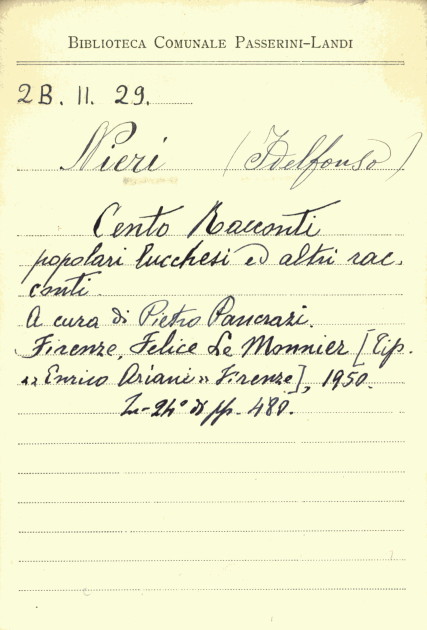 BIBLIOTECA COMUNALE PASSERINI-LANDI
2B. II. 29.
Nieri (Idelfonso)
Cento Racconti
popolari lucchesi ed altri rac-
conti.
A cura di Pietro Pancrazi.
Firenze, Felice Le Monnier [Tip.
"Enrico Ariani" Firenze], 1950.
In-24° di pp. 480.